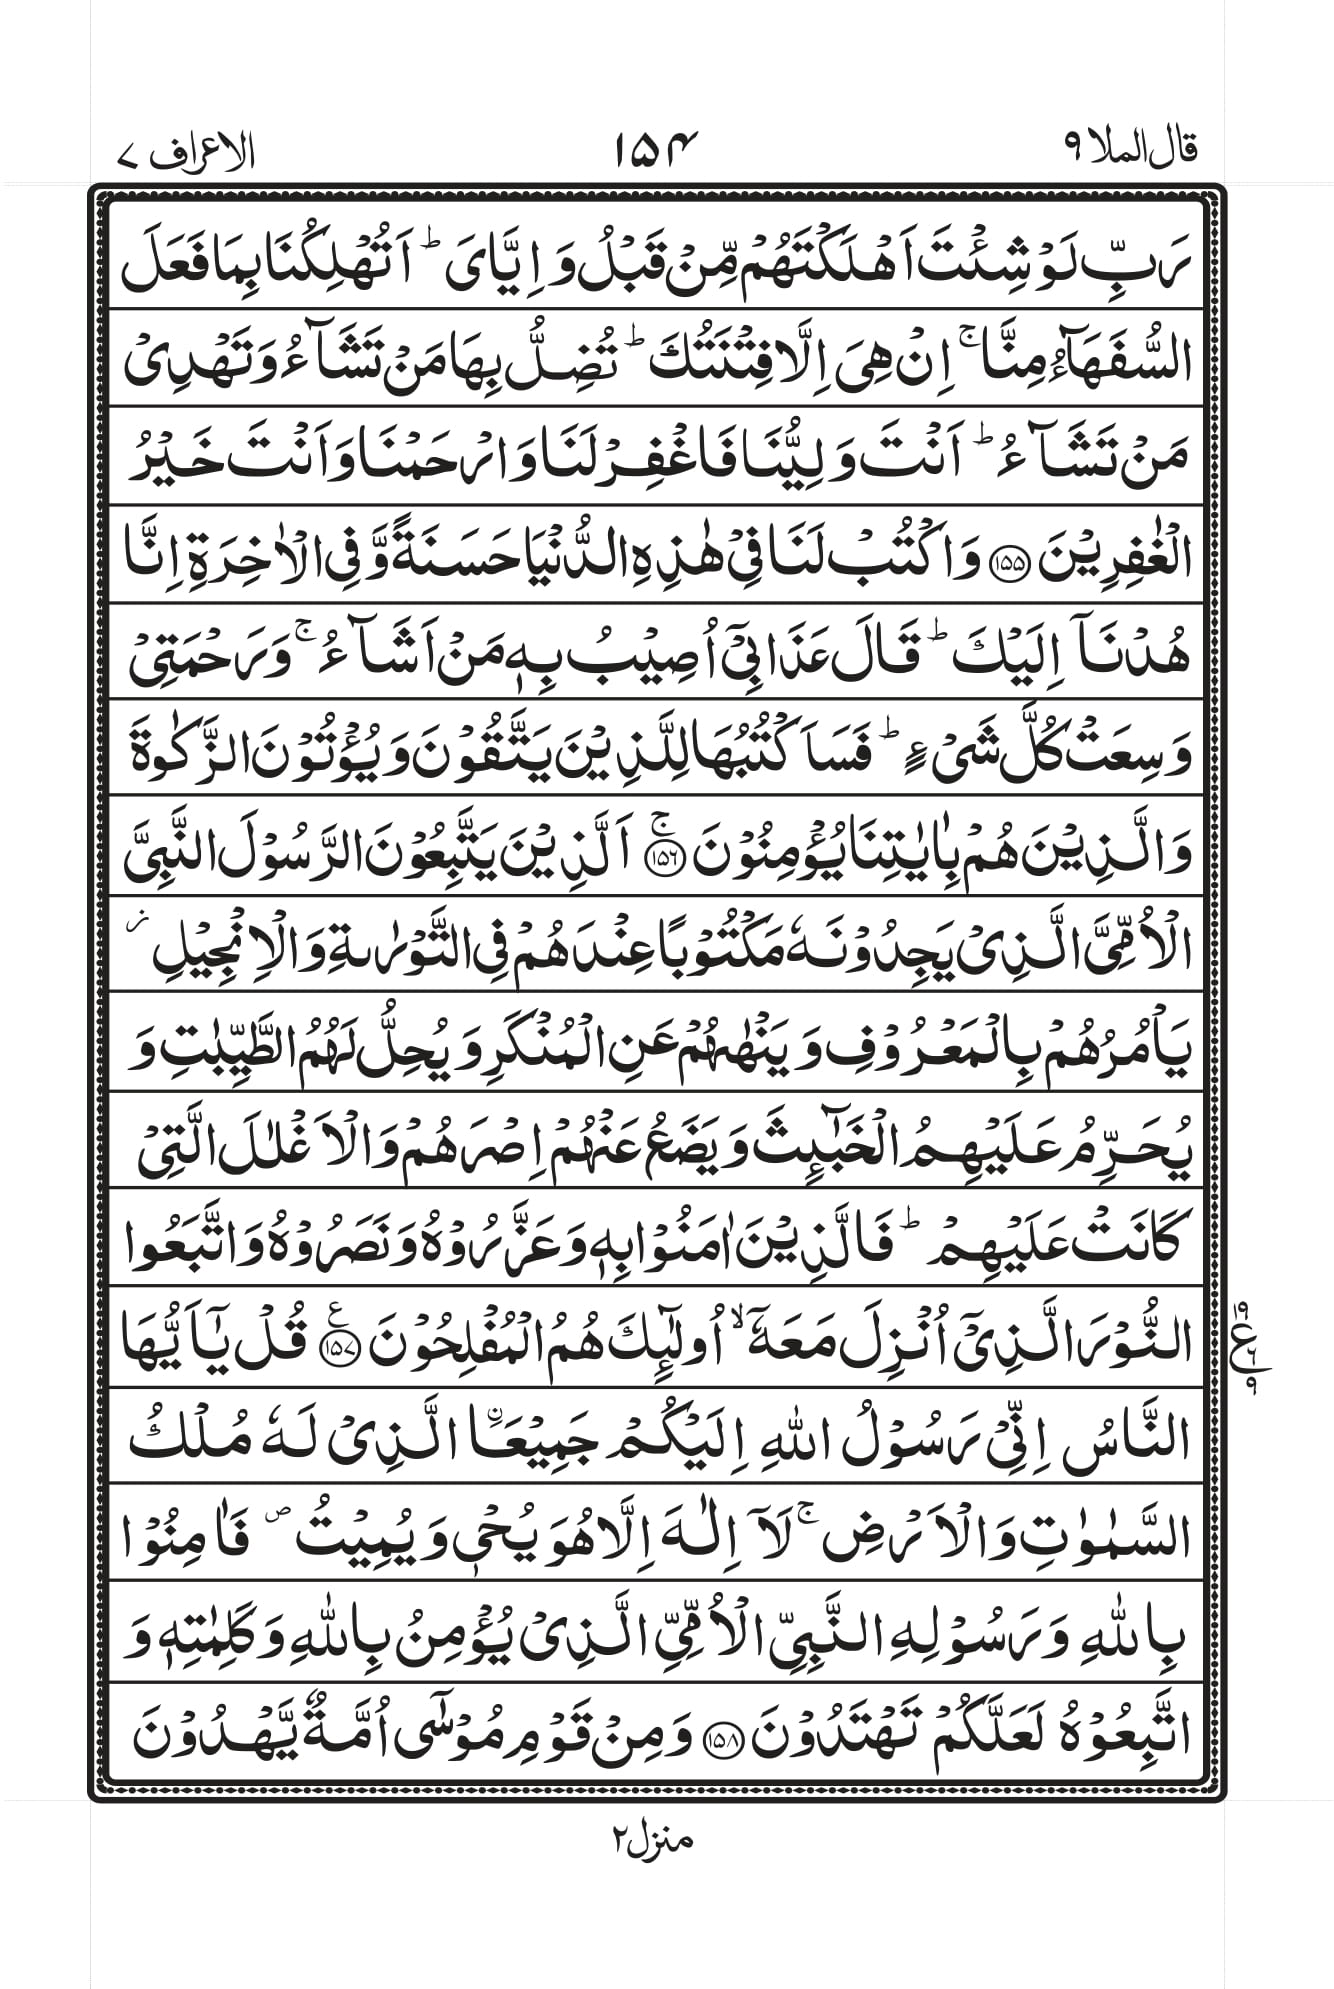 قال الملا ٩ ١٥۴ الاعراف ٧
رَبِّ لَوۡ شِئۡتَ اَهۡلَكۡتَهُمۡ مِّنۡ قَبۡلُ وَ اِيَّاىَ ؕ اَتُهۡلِكُنَا بِمَا فَعَلَ
السُّفَهَآءُ مِنَّا ۚ اِنۡ هِىَ اِلَّا فِتۡنَتُكَ ؕ تُضِلُّ بِهَا مَنۡ تَشَآءُ وَ تَهۡدِىۡ
مَنۡ تَشَآءُ ؕ اَنۡتَ وَلِيُّنَا فَاغۡفِرۡ لَنَا وَ ارۡحَمۡنَا وَ اَنۡتَ خَيۡرُ
الۡغٰفِرِيۡنَ ﴿۱۵۵﴾ وَ اكۡتُبۡ لَنَا فِىۡ هٰذِهِ الدُّنۡيَا حَسَنَةً وَّ فِى الۡاٰخِرَةِ اِنَّا
هُدۡنَاۤ اِلَيۡكَ ؕ قَالَ عَذَابِىۡۤ اُصِيۡبُ بِهٖ مَنۡ اَشَآءُ ۚ وَ رَحۡمَتِىۡ
وَسِعَتۡ كُلَّ شَىۡءٍ ؕ فَسَاَكۡتُبُهَا لِلَّذِيۡنَ يَتَّقُوۡنَ وَ يُؤۡتُوۡنَ الزَّكٰوةَ
وَ الَّذِيۡنَ هُمۡ بِاٰيٰتِنَا يُؤۡمِنُوۡنَ ۚ﴿۱۵۶﴾ اَلَّذِيۡنَ يَتَّبِعُوۡنَ الرَّسُوۡلَ النَّبِىَّ
الۡاُمِّىَّ الَّذِىۡ يَجِدُوۡنَهٗ مَكۡتُوۡبًا عِنۡدَهُمۡ فِى التَّوۡرٰٮةِ وَ الۡاِنۡجِيۡلِ ز
يَاۡمُرُهُمۡ بِالۡمَعۡرُوۡفِ وَ يَنۡهٰٮهُمۡ عَنِ الۡمُنۡكَرِ وَ يُحِلُّ لَهُمُ الطَّيِّبٰتِ وَ
يُحَرِّمُ عَلَيۡهِمُ الۡخَبٰٓٮِٕثَ وَ يَضَعُ عَنۡهُمۡ اِصۡرَهُمۡ وَ الۡاَغۡلٰلَ الَّتِىۡ
كَانَتۡ عَلَيۡهِمۡ ؕ فَالَّذِيۡنَ اٰمَنُوۡا بِهٖ وَ عَزَّرُوۡهُ وَ نَصَرُوۡهُ وَ اتَّبَعُوا
النُّوۡرَ الَّذِىۡۤ اُنۡزِلَ مَعَهٗۤ ۙ اُولٰٓٮِٕكَ هُمُ الۡمُفۡلِحُوۡنَ ﴿۱۵۷﴾ع قُلۡ يٰۤاَيُّهَا
۱۹ ع ۶ ۹
النَّاسُ اِنِّىۡ رَسُوۡلُ اللّٰهِ اِلَيۡكُمۡ جَمِيۡعَاۨ الَّذِىۡ لَهٗ مُلۡكُ
السَّمٰوٰتِ وَ الۡاَرۡضِ ۚ لَاۤ اِلٰهَ اِلَّا هُوَ يُحۡىٖ وَ يُمِيۡتُ ص فَاٰمِنُوۡا
بِاللّٰهِ وَ رَسُوۡلِهِ النَّبِىِّ الۡاُمِّىِّ الَّذِىۡ يُؤۡمِنُ بِاللّٰهِ وَ كَلِمٰتِهٖ وَ
اتَّبِعُوۡهُ لَعَلَّكُمۡ تَهۡتَدُوۡنَ ﴿۱۵۸﴾ وَ مِنۡ قَوۡمِ مُوۡسٰٓى اُمَّةٌ يَّهۡدُوۡنَ
منزل ۲